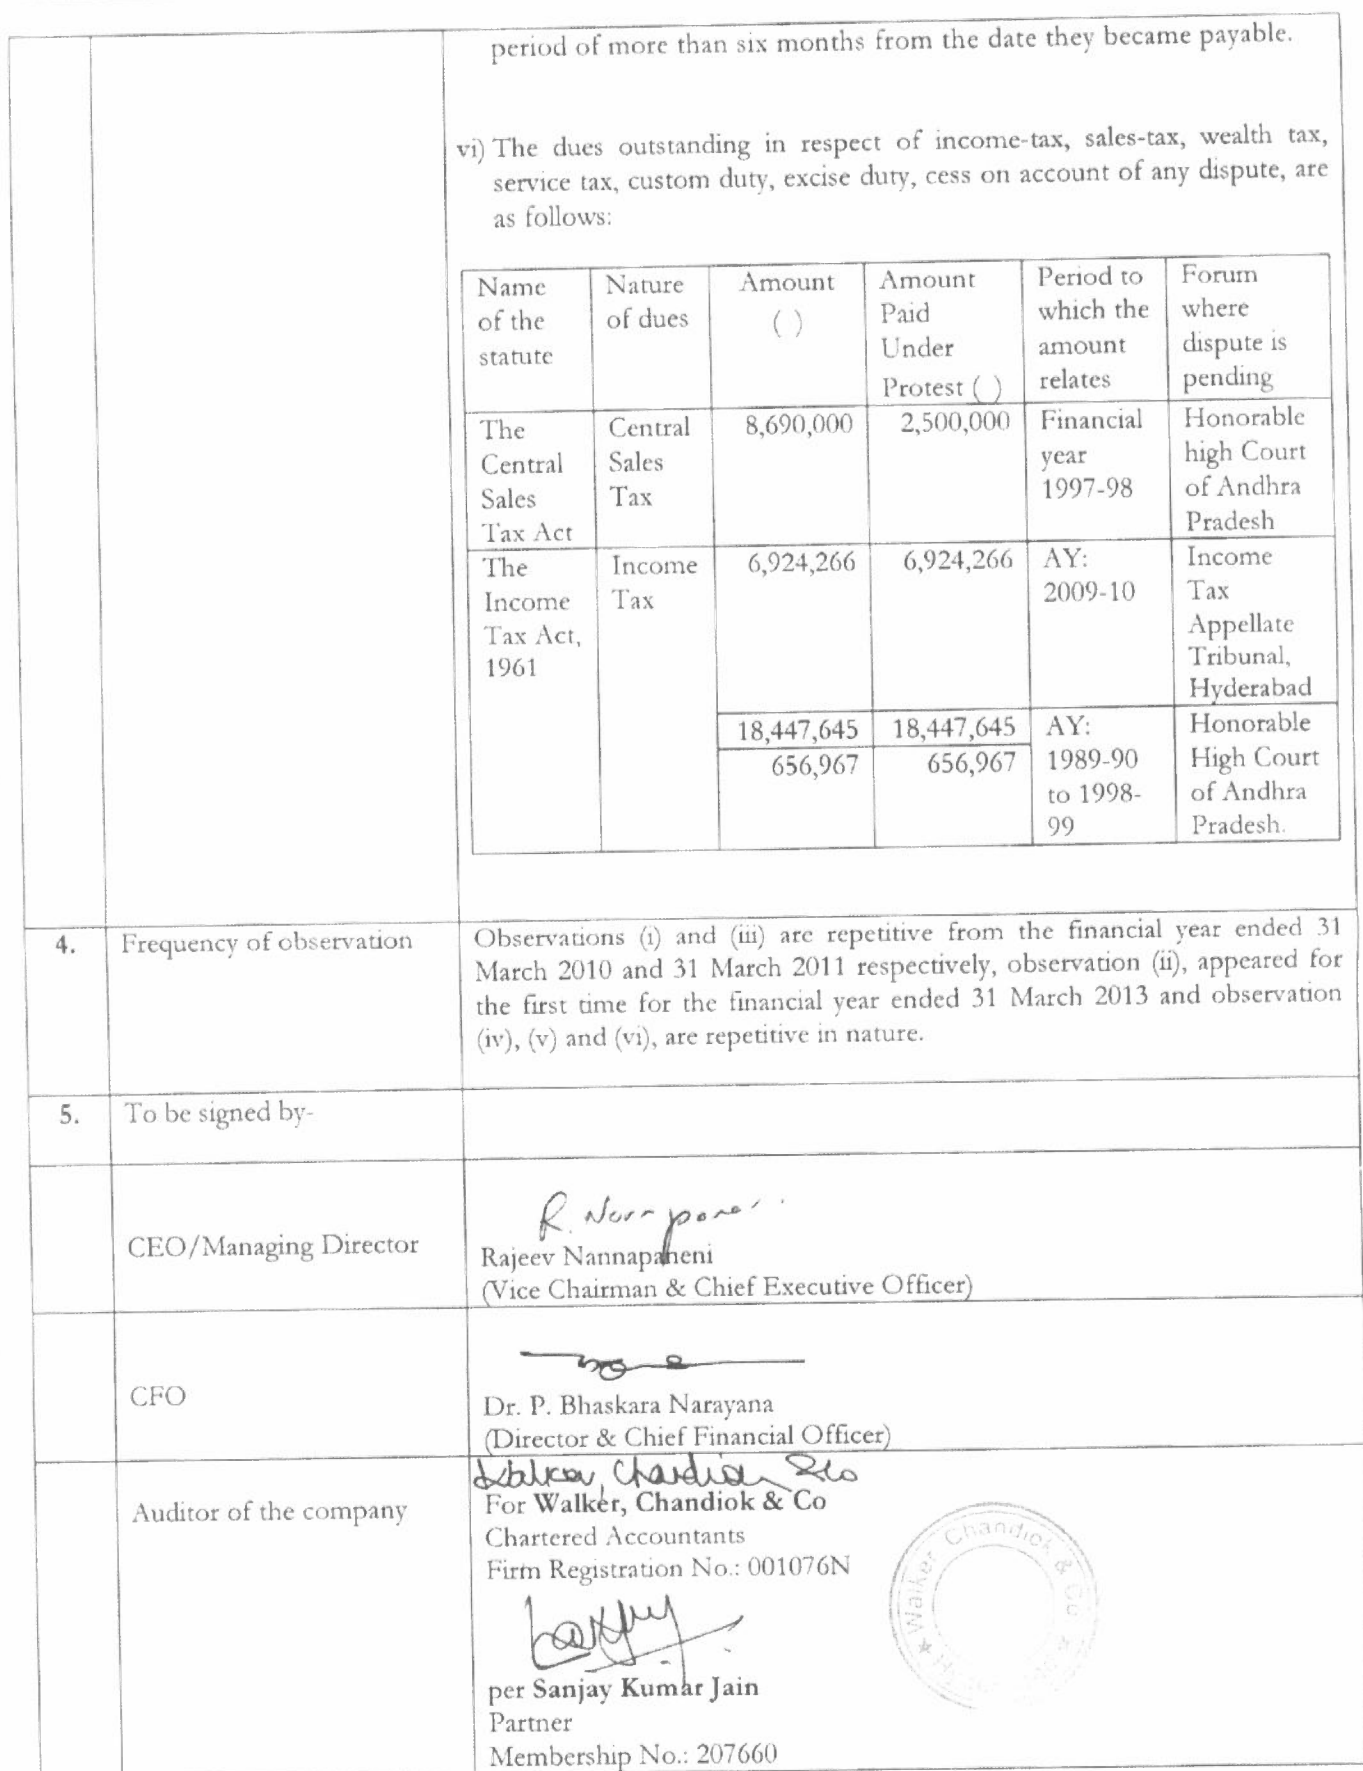 period of more than six months from the date they became payable.
vi) The dues outstanding in respect of income-tax, sales-tax, wealth tax,
service tax, custom duty, excise duty, cess on account of any dispute, are
as follows:
Name of the statute | Nature of dues | Amount ( ) | Amount Paid Under Protest ( ) | Period to which the amount relates | Forum where dispute is pending
The Central Sales Tax Act | Central Sales Tax | 8,690,000 | 2,500,000 | Financial year 1997-98 | Honorable high Court of Andhra Pradesh
The Income Tax Act, 1961 | Income Tax | 6,924,266 | 6,924,266 | AY: 2009-10 | Income Tax Appellate Tribunal, Hyderabad
18,447,645 | 18,447,645 | AY: 1989-90 to 1998-99 | Honorable High Court of Andhra Pradesh.
656,967 | 656,967
4. Frequency of observation
Observations (i) and (iii) are repetitive from the financial year ended 31
March 2010 and 31 March 2011 respectively, observation (ii), appeared for
the first time for the financial year ended 31 March 2013 and observation
(iv), (v) and (vi), are repetitive in nature.
5. To be signed by-
CEO/Managing Director
Rajeev Nannapaneni
(Vice Chairman & Chief Executive Officer)
CFO
Dr. P. Bhaskara Narayana
(Director & Chief Financial Officer)
Auditor of the company
Walker, Chandiok & Co
For Walker, Chandiok & Co
Chartered Accountants
Firm Registration No.: 001076N
per Sanjay Kumar Jain
Partner
Membership No.: 207660
Walker Chandiok & Co